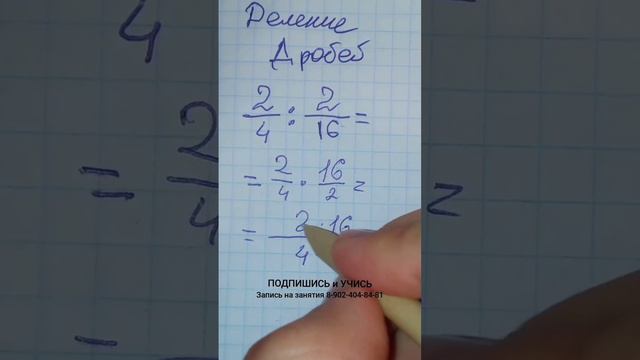 Деление
Дробей
2/4 : 2/16 =
= 2/4 · 16/2 =
= 2·16
4
ПОДПИШИСЬ и УЧИСЬ
Запись на занятия 8-902-404-84-81